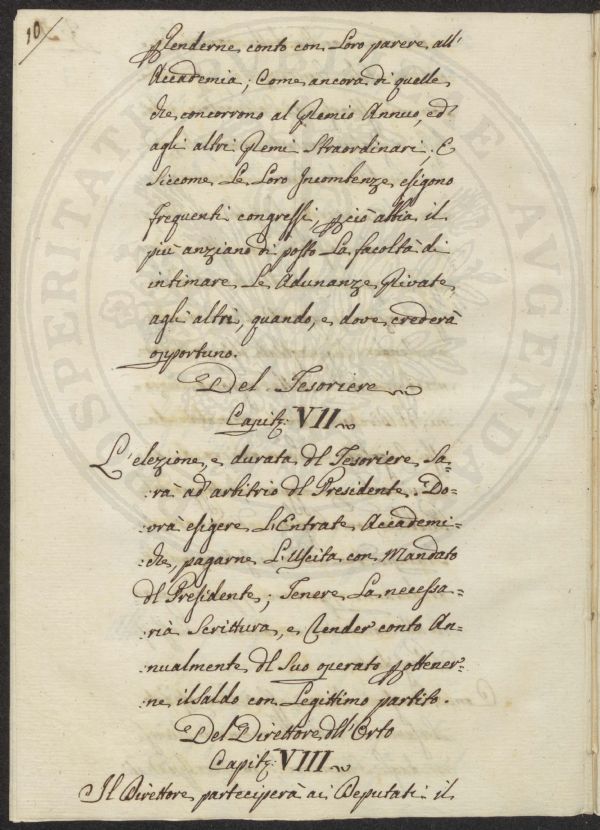 10
prenderne conto con Loro parere all'
Accademia; Come ancora di quelle
che concorrono al Premio Annuo, ed
agli altri Premi Straordinari. E
Siccome Le Loro Incombenze esigono
frequenti congressi, pciò abbia il
più anziano di posto La facoltà di
intimare Le Adunanze Private
agli altri, quando, e dove crederà
opportuno.
Del Tesoriere
Capit: VII
L'elezione, e durata dl Tesoriere Sa=
:rà ad arbitrio dl Presidente. Do=
:vrà esigere L'Entrate Accademi=
:che, pagarne L'Uscita con Mandato
dl Presidente; Tenere La necessa=
:ria Scrittura, e Render conto An=
:nualmente dl Suo operato p ottener=
:ne il saldo con Legittimo partito.
Del Direttore dll'Orto
Capit: VIII
Il Direttore parteciperà ai Deputati il
PROSPERITATI PUBLICAE AUGENDAE